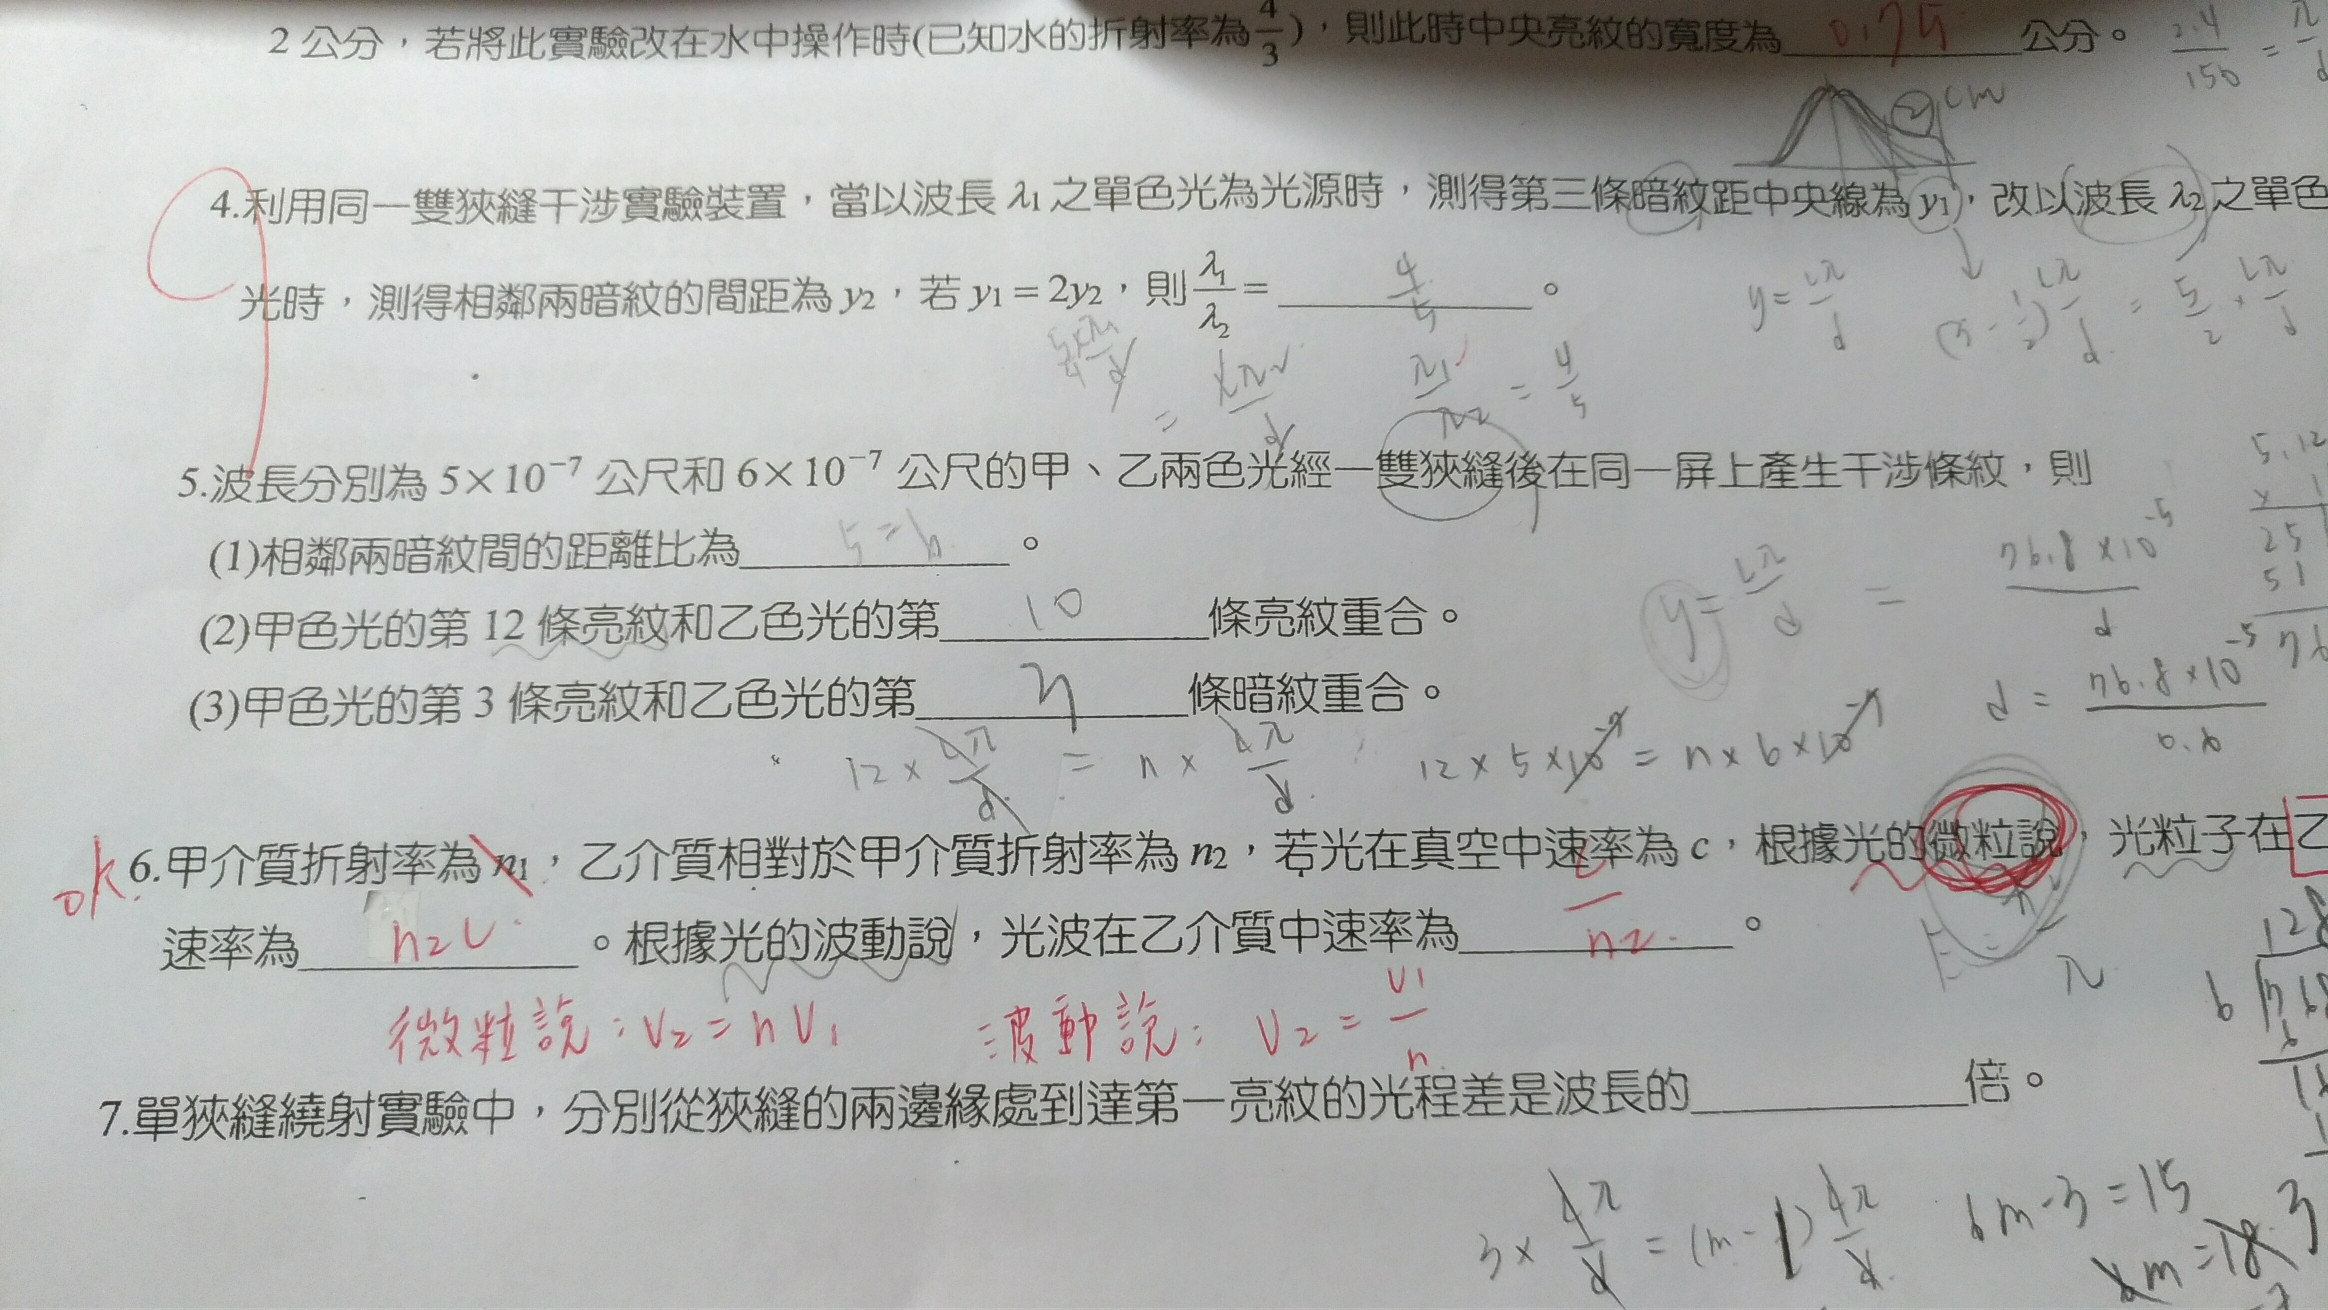 2 公分，若將此實驗改在水中操作時(已知水的折射率為4/3)，則此時中央亮紋的寬度為 0.75 公分。
2.4/150 = λ/d
2 cm
4.利用同一雙狹縫干涉實驗裝置，當以波長 λ1 之單色光為光源時，測得第三條暗紋距中央線為 y1，改以波長 λ2 之單色
光時，測得相鄰兩暗紋的間距為 y2，若 y1 = 2y2，則 λ1/λ2 = 4/5 。
y = Lλ/d
= 5/2 × Lλ/d
λ1/λ2 = 4/5
5.波長分別為 5×10⁻⁷ 公尺和 6×10⁻⁷ 公尺的甲、乙兩色光經一雙狹縫後在同一屏上產生干涉條紋，則
(1)相鄰兩暗紋間的距離比為 5=6 。
y = Lλ/d = 76.8×10⁻⁵/d
(2)甲色光的第 12 條亮紋和乙色光的第 10 條亮紋重合。
(3)甲色光的第 3 條亮紋和乙色光的第 3 條暗紋重合。
d = 76.8×10⁻⁵/0.6
12 × Lλ/d = n × Lλ/d
12 × 5 × 10⁻⁷ = n × 6 × 10⁻⁷
ok
6.甲介質折射率為 n1，乙介質相對於甲介質折射率為 n2，若光在真空中速率為 c，根據光的微粒說，光粒子在乙
速率為 n2c 。根據光的波動說，光波在乙介質中速率為 c/n2 。
λ
微粒說：V2 = nV1
波動說：V2 = V1/n
7.單狹縫繞射實驗中，分別從狹縫的兩邊緣處到達第一亮紋的光程差是波長的 倍。
6m-3=15
6m=18 3